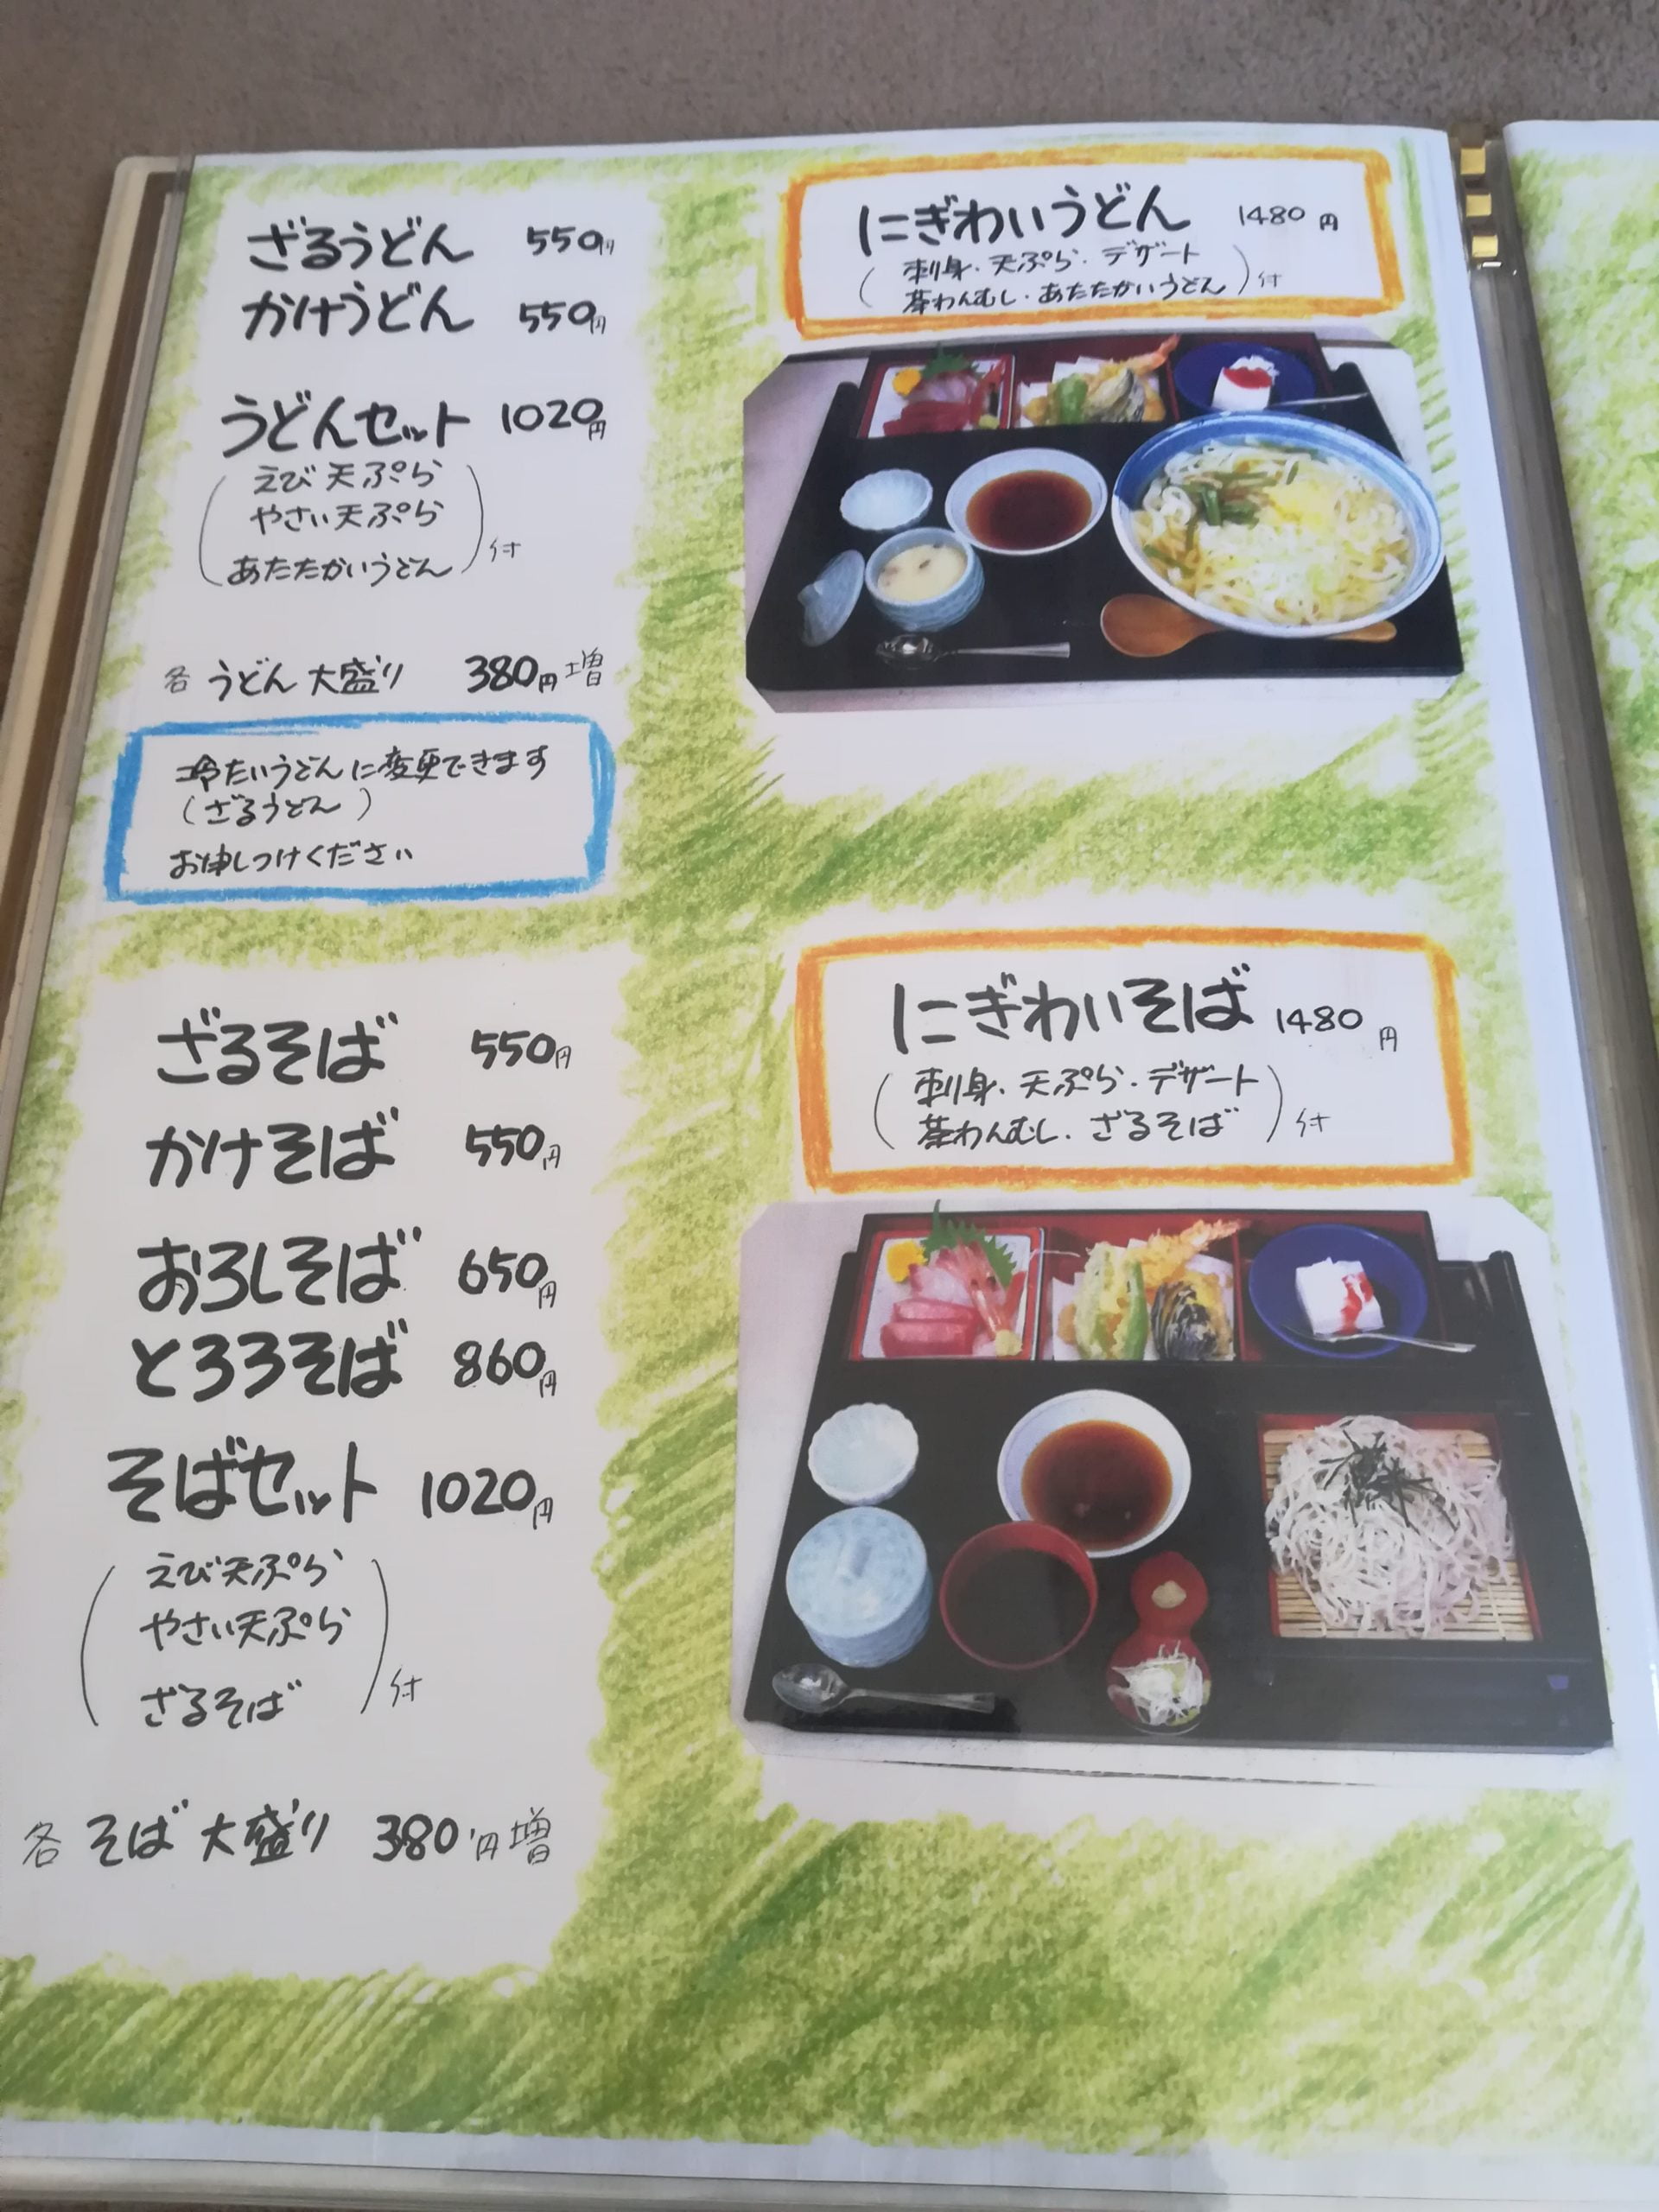 ざるうどん 550円
かけうどん 550円
うどんセット 1020円
(えび天ぷら
やさい天ぷら
あたたかいうどん)付
各 うどん 大盛り 380円増
冷たいうどんに変更できます
(ざるうどん)
お申しつけください
ざるそば 550円
かけそば 550円
おろしそば 650円
とろろそば 860円
そばセット 1020円
(えび天ぷら
やさい天ぷら
ざるそば)付
各 そば 大盛り 380円増
にぎわいうどん 1480円
(刺身・天ぷら・デザート
茶わんむし・あたたかいうどん)付
にぎわいそば 1480円
(刺身・天ぷら・デザート
茶わんむし・ざるそば)付